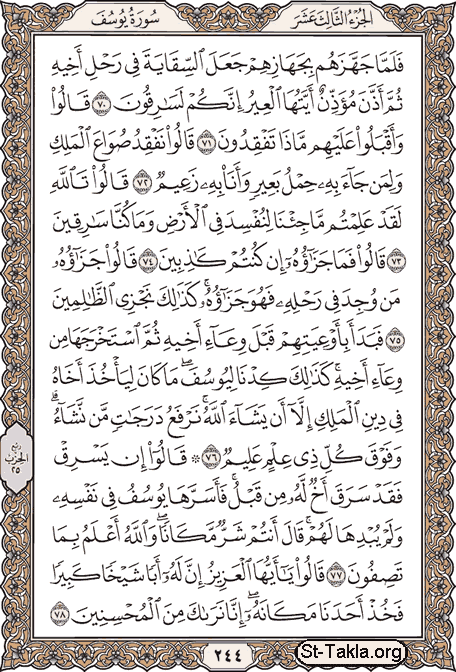 سُورَةُ يُوسُفَ
الجُزْءُ الثَّالِثَ عَشَرَ
فَلَمَّا جَهَّزَهُم بِجَهَازِهِمْ جَعَلَ ٱلسِّقَايَةَ فِى رَحْلِ أَخِيهِ
ثُمَّ أَذَّنَ مُؤَذِّنٌ أَيَّتُهَا ٱلْعِيرُ إِنَّكُمْ لَسَٰرِقُونَ ٧٠ قَالُوا۟
وَأَقْبَلُوا۟ عَلَيْهِم مَّاذَا تَفْقِدُونَ ٧١ قَالُوا۟ نَفْقِدُ صُوَاعَ ٱلْمَلِكِ
وَلِمَن جَآءَ بِهِۦ حِمْلُ بَعِيرٍ وَأَنَا۠ بِهِۦ زَعِيمٌ ٧٢ قَالُوا۟ تَٱللَّهِ
لَقَدْ عَلِمْتُم مَّا جِئْنَا لِنُفْسِدَ فِى ٱلْأَرْضِ وَمَا كُنَّا سَٰرِقِينَ
٧٣ قَالُوا۟ فَمَا جَزَٰٓؤُهُۥٓ إِن كُنتُمْ كَٰذِبِينَ ٧٤ قَالُوا۟ جَزَٰٓؤُهُۥ
مَن وُجِدَ فِى رَحْلِهِۦ فَهُوَ جَزَٰٓؤُهُۥ ۚ كَذَٰلِكَ نَجْزِى ٱلظَّٰلِمِينَ
٧٥ فَبَدَأَ بِأَوْعِيَتِهِمْ قَبْلَ وِعَآءِ أَخِيهِ ثُمَّ ٱسْتَخْرَجَهَا مِن
وِعَآءِ أَخِيهِ ۚ كَذَٰلِكَ كِدْنَا لِيُوسُفَ ۖ مَا كَانَ لِيَأْخُذَ أَخَاهُ
فِى دِينِ ٱلْمَلِكِ إِلَّآ أَن يَشَآءَ ٱللَّهُ ۚ نَرْفَعُ دَرَجَٰتٍ مَّن نَّشَآءُ ۗ
وَفَوْقَ كُلِّ ذِى عِلْمٍ عَلِيمٌ ٧٦ ۞ قَالُوٓا۟ إِن يَسْرِقْ
فَقَدْ سَرَقَ أَخٌ لَّهُۥ مِن قَبْلُ ۚ فَأَسَرَّهَا يُوسُفُ فِى نَفْسِهِۦ
وَلَمْ يُبْدِهَا لَهُمْ ۚ قَالَ أَنتُمْ شَرٌّ مَّكَانًا ۖ وَٱللَّهُ أَعْلَمُ بِمَا
تَصِفُونَ ٧٧ قَالُوا۟ يَٰٓأَيُّهَا ٱلْعَزِيزُ إِنَّ لَهُۥٓ أَبًا شَيْخًا كَبِيرًا
فَخُذْ أَحَدَنَا مَكَانَهُۥٓ ۖ إِنَّا نَرَىٰكَ مِنَ ٱلْمُحْسِنِينَ ٧٨
رُبْع
الحِزْب
٢٥
٢٤٤
St-Takla.org